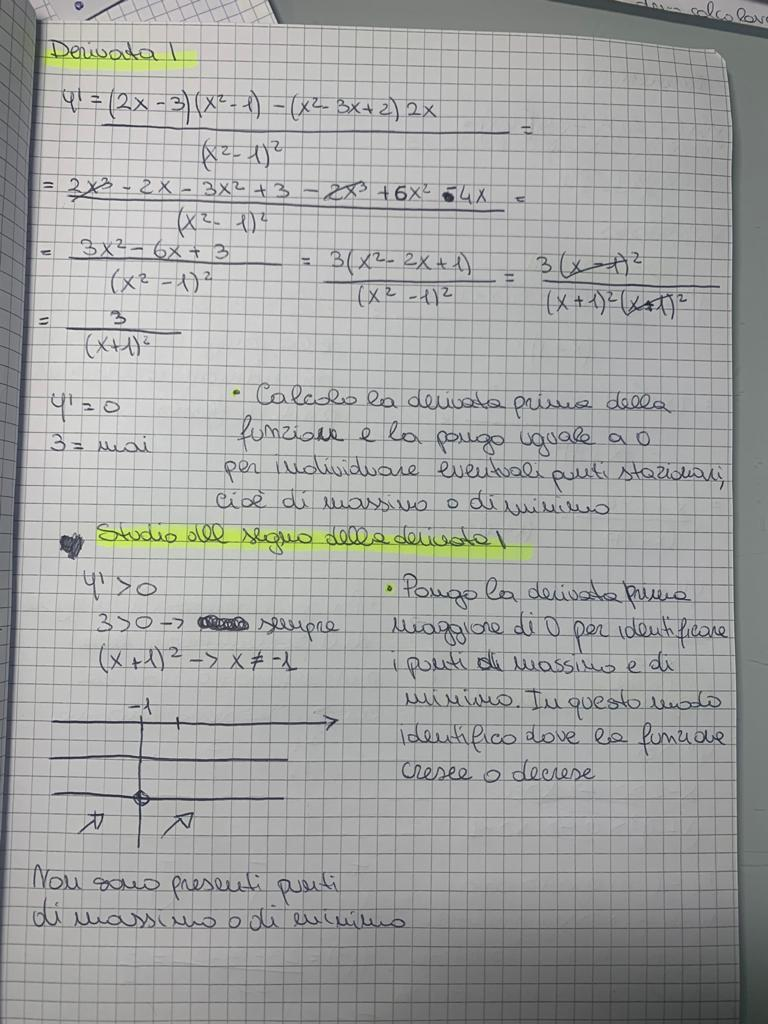 calcolare
Derivata 1
y' = (2x - 3)(x² - 1) - (x² - 3x + 2) 2x =
(x² - 1)²
= 2x³ - 2x - 3x² + 3 - 2x³ + 6x² - 4x =
(x² - 1)²
= 3x² - 6x + 3 = 3(x² - 2x + 1) = 3(x - 1)²
(x² - 1)² (x² - 1)² (x + 1)² (x - 1)²
= 3
(x+1)²
y' = 0
3 = mai
• Calcolo la derivata prima della
funzione e la pongo uguale a 0
per individuare eventuali punti stazionari,
cioè di massimo o di minimo
Studio del segno della derivata 1
y' > 0
3 > 0 -> sempre
(x + 1)² -> x ≠ -1
• Pongo la derivata prima
maggiore di 0 per identificare
i punti di massimo e di
minimo. In questo modo
identifico dove la funzione
cresce o decrese
-1
Non sono presenti punti
di massimo o di minimo